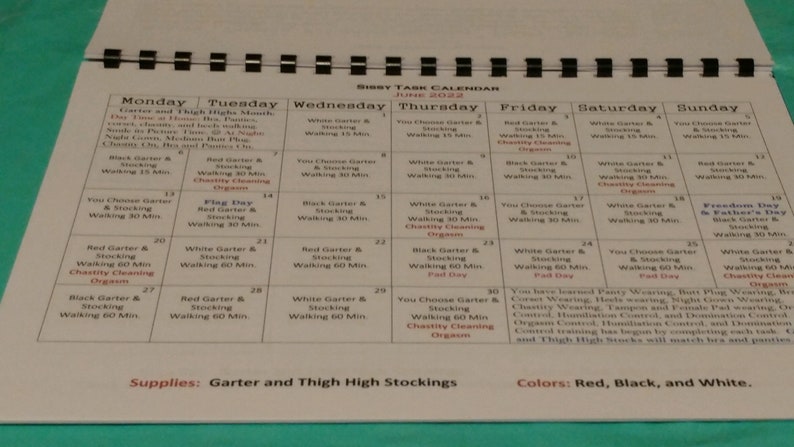 Sissy Task Calendar
JUNE 2022
Monday Tuesday Wednesday Thursday Friday Saturday Sunday
Garter and Thigh Highs Month:
Day Time at Home: Bra, Panties,
corset, chastity, and heels walking.
Smile its Picture Time. ☺ At Night:
Night Gown, Medium Butt Plug,
Chastity On, Bra and Panties On.
1
White Garter &
Stocking
Walking 15 Min.
2
You Choose Garter &
Stocking
Walking 15 Min.
3
Red Garter &
Stocking
Walking 15 Min.
Chastity Cleaning
Orgasm
4
White Garter &
Stocking
Walking 15 Min.
5
You Choose Garter &
Stocking
Walking 15 Min.
6
Black Garter &
Stocking
Walking 15 Min.
7
Red Garter &
Stocking
Walking 30 Min.
Chastity Cleaning
Orgasm
8
You Choose Garter &
Stocking
Walking 30 Min.
9
White Garter &
Stocking
Walking 30 Min.
10
Black Garter &
Stocking
Walking 30 Min.
11
White Garter &
Stocking
Walking 30 Min.
Chastity Cleaning
Orgasm
12
Red Garter &
Stocking
Walking 30 Min.
13
You Choose Garter &
Stocking
Walking 30 Min.
14
Flag Day
Red Garter &
Stocking
Walking 30 Min.
15
Black Garter &
Stocking
Walking 30 Min.
16
White Garter &
Stocking
Walking 30 Min.
Chastity Cleaning
Orgasm
17
You Choose Garter &
Stocking
Walking 30 Min.
18
White Garter &
Stocking
Walking 30 Min.
19
Freedom Day
& Father's Day
Black Garter &
Stocking
Walking 30 Min.
20
Red Garter &
Stocking
Walking 60 Min.
Chastity Cleaning
Orgasm
21
White Garter &
Stocking
Walking 60 Min.
22
Red Garter &
Stocking
Walking 60 Min.
23
Black Garter &
Stocking
Walking 60 Min.
Pad Day
24
White Garter &
Stocking
Walking 60 Min.
Pad Day
25
You Choose Garter
& Stocking
Walking 60 Min.
Pad Day
White Garter &
Stocking
Walking 60 Min.
Chastity Cleaning
Orgasm
27
Black Garter &
Stocking
Walking 60 Min.
28
Red Garter &
Stocking
Walking 60 Min.
29
White Garter &
Stocking
Walking 60 Min.
30
You Choose Garter &
Stocking
Walking 60 Min
Chastity Cleaning
Orgasm
You have learned Panty Wearing, Butt Plug Wearing, Bra
Corset Wearing, Heels wearing, Night Gown Wearing,
Chastity Wearing, Tampon and Female Pad wearing,
Control, Humiliation Control, and Domination Control.
Orgasm Control, Humiliation Control, and Domination
Control training has begun by completing each task.
and Thigh High Stocks will match bra and panties.
Supplies: Garter and Thigh High Stockings
Colors: Red, Black, and White.